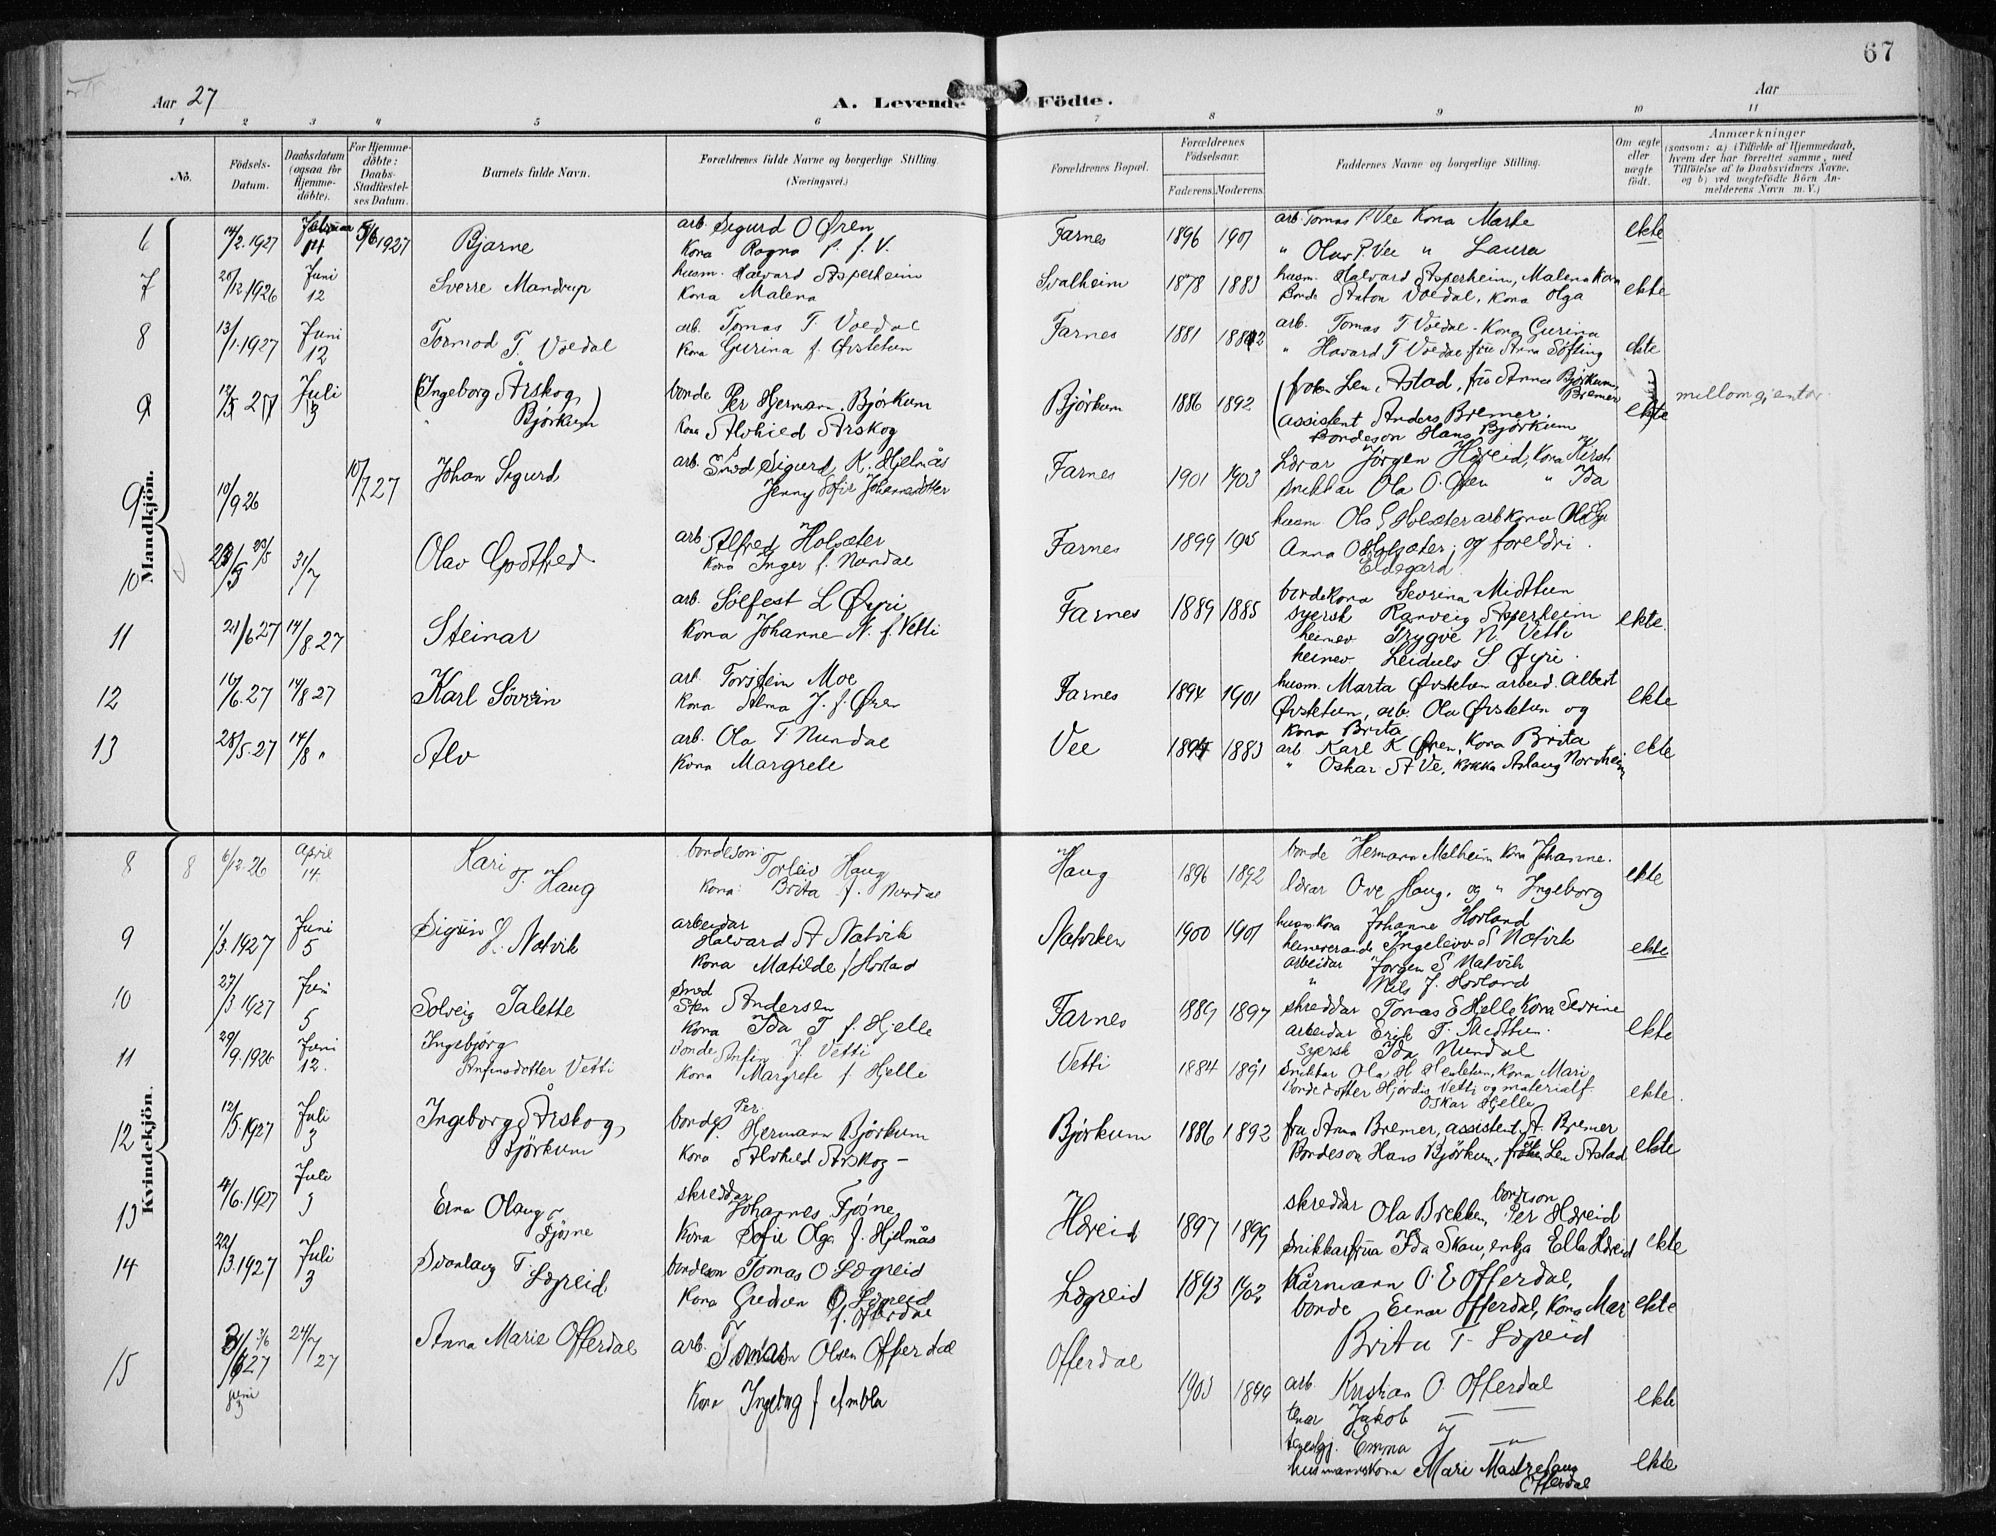 67
Aar 27
A. Levende Födte.
Aar
1 2 3 4 5 6 7 8 9 10 11
No.
Födsels-Datum.
Daabsdatum (ogsaa for Hjemme-döbte).
For Hjemme-döbte: Daabs-Stadfæstel-ses Datum.
Barnets fulde Navn.
Forældrenes fulde Navne og borgerlige Stilling. (Næringsvei.)
Forældrenes Bopæl.
Forældrenes Födselsaar.
Faderens. Moderens.
Faddernes Navne og borgerlige Stilling.
Om ægte eller uægte födt.
Anmærkninger
(saasom: a) i Tilfælde af Hjemmedaab, hvem der har forrettet samme, med Tilföielse af to Daabsvidners Navne, og b) ved uægtefödte Börn An-melderens Navn m. V.)
Mandkjön.
6 14/2.1927 14 5/6 1927 Bjarne
arb. Sigurd O Øren
Kona Ragna P. f. V.
Farnes 1896 1901
arb. Tomas P. Vee Kona Marte
" Olav P. Vee " Laura
ekte
7 26/12 1926 Juni 12 Sverre Mandrup
husm. Halvard Asperheim
Kona Malena
Svalheim 1878 1883
husm. Halvard Asperheim, Malena Kona
Bonde Anton Voedal, Kona Olga
ekte
8 13/1.1927 Juni 12 Tormod T. Voedal
arb. Tomas T. Voedal
Kona Gurina f. Øvstetun
Farnes 1881 1882
arb. Tomas T Voedal - Kona Gurina
" Havard T Voedal fru Anna Söfting
ekte
9 12/5 27 Juli 3 (Ingeborg Arskog
Bjørkum)
bonde Per Hermann Bjørkum
Kona Alvhild Arskog
Bjørkum 1886 1892
(frøken Len Astad, frú Anna Bremer
assistent Anders Bremer.
Bondeson Hans Bjørkum
ekte millomgjentor
9 10/9 26 10/7 27 Johan Sigurd
arb. Smed Sigurd K. Hjelmås
Jenny Sofie Johannesdotter
Farnes 1901 1903
Lærar Jörgen Hæreid, Kona Kirsti
snikkar Ola O. Øren " Ida
10 23/5 31/7 Olav Godtfred
arb. Alfred Holsæter
Kona Inger f. Nundal
Farnes 1899 1905
husm Ola Holsæter arb Kona
Anna O Holsæter; og foreldri.
Eldegard.
11 21/6 27 14/8.27 Steinar
arb. Sölfest L Øyri
Kona Johanne N. f. Vetti
Farnes 1889 1885
bondekona Sevrina Midttun
syersk Ranveig Asperheim
heimev Trygve N. Vetti
heimev. Leidulv S Øyri.
ekte.
12 10/6.27 14/8 27 Karl Söverin
arb. Torstein Moe
Kona Alma J. f. Øren
Farnes 1894 1901
husm. Marta Øvstetun arbeid. Albert
Øvstetun, arb. Ola Øvstetun og
Kona Brita
ekte
13 28/5.27 14/8 " Alv
arb. Ola T Nundal
Kona Margrete
Vee 1894 1883
arb Karl K Øren, Kona Brita
" Oskar A Ve, kokka Aslaug Nordheim
ekte
Kvindekjön.
8 8 6/12.26 April 14. Kari
T. Haug
bondeson: Torleiv Haug
Kona: Brita f. Nundal
Haug 1896 1892
bonde Hermann Melheim Kona Johanne.
lærar Ove Haug, og " Ingeborg
ekte
9 1/3.1927 Juni 5 Sigrún H. Natvik
arbeidar
Halvard A Natvik
Kona Matilde f Hovland
Natviken 1900 1901
husm.kona Johanne Hovland
heimeverande Ingeleiv S Natvik
arbeidar Jørgen S Natvik
" Nils J. Hovland
ekte
10 27/3 1927 Juni 5 Solveig Jalette
smed
Sten Andersen
Kona Ida T f. Hjelle
Farnes 1889 1897
skreddar Tomas E Helle Kona Sevrine
arbeidar Erik T. Midttun.
syersk Ida Nundal
ekte
11 29/9.1926 Juni 12. Ingebjörg
Anfinsdotter Vetti
bonde Anfin J. Vetti
Kona Margrete f. Hjelle
Vetti 1884 1891
Snikkar Ola H Hestetun, Kona Mari
bondedotter Hjördis Vetti og materialf.
Oskar Hjelle
ekte.
12 12/5.1927 Juli 3 Ingeborg Arskog
Bjørkum
bonde Per
Hermann Bjørkum
Kona Alvhild Arskog -
Bjørkum 1886 1892
fru Anna Bremer, assistent A. Bremer
Bondeson Hans Bjørkum, frøken Len Astad
ekte
13 4/6.1927 Juli 3 Erna Olaug
Fjøsne
skreddar
Johannes Fjøsne
Kona Sofie Olga f. Hjelmås
Hæreid 1897 1899
skreddar Ola Brekken, bondeson Per Hæreid
Snikkarfrúa Ida Skau, enkja Ella Hæreid
ekte
14 22/3.1927 Juli 3 Svanlaug T.
Lægreid
bondeson Tomas O Lægreid
Kona Gudrun O. Lægreid
f. Offerdal
Lægreid 1893 1902
Kårmann O. E Offerdal,
bonde Einar Offerdal, Kona Mari
Brita T. Lægreid
ekte
15 3/6 27 juni 3 24/7 27 Anna Marie Offerdal
arb. Tomas Olsen Offerdal
Kona Ingeborg f Ambla
Offerdal 1903 1899
arb. Kristian O. Offerdal
tenar Jakob — " —
Emma — " —
husmannskona Mari Mastrehaug
Offerdal
ekte
ekte